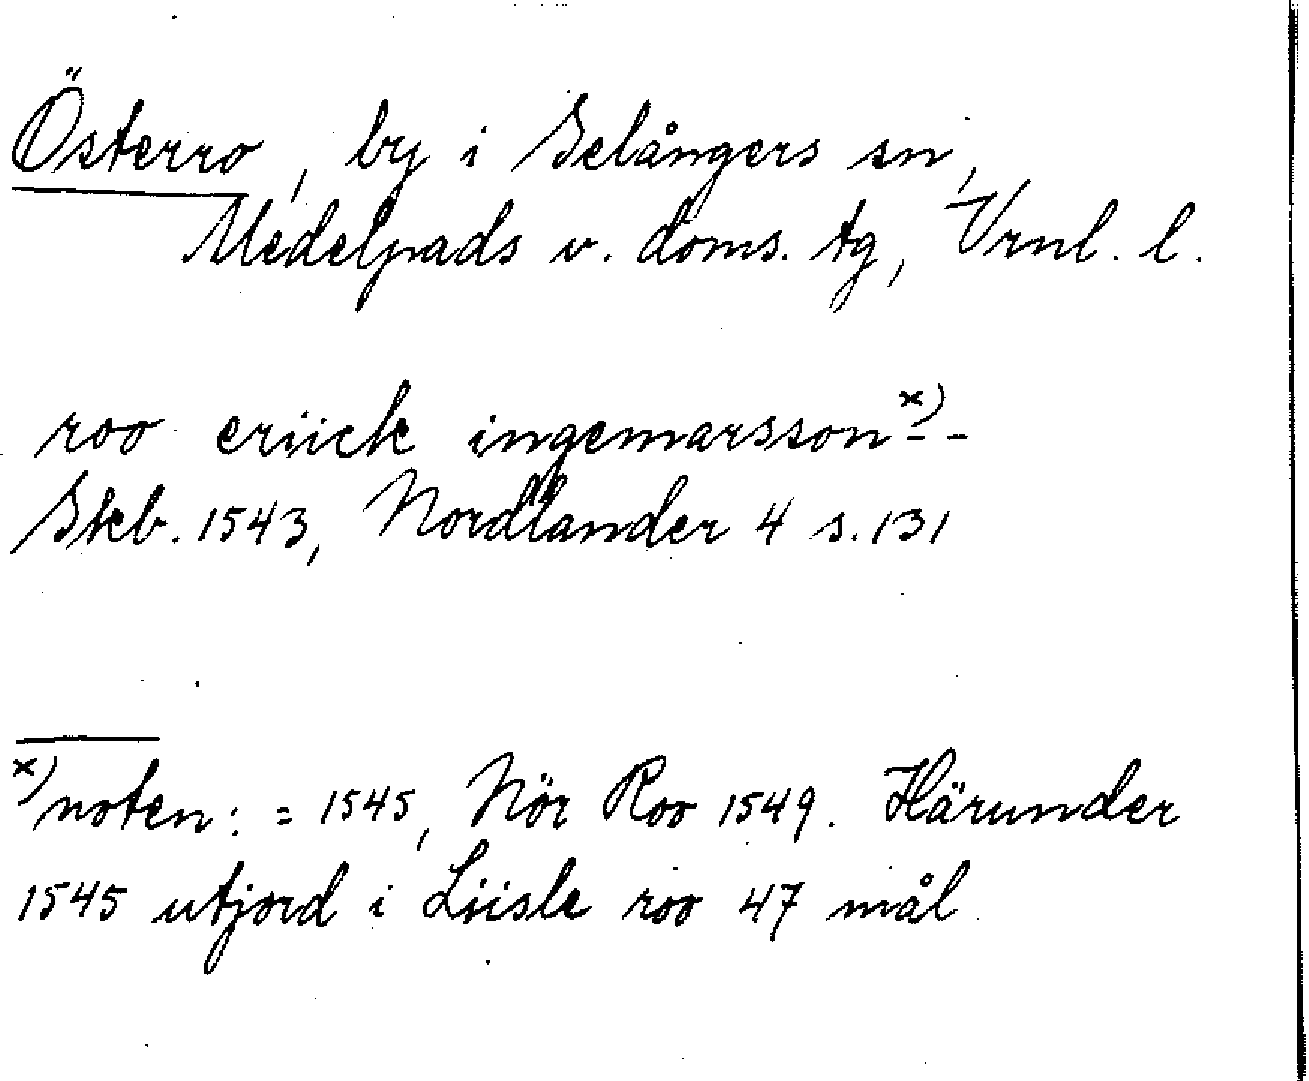 Österro, by i Selångers sn,
Medelpads v. doms. tg, Vrnl. l.
roo eriick ingemarsson x) - -
Skb. 1543, Nordlander 4 s. 131
x) noten: = 1545, Nör Roo 1549. Härunder
1545 utjord i Liisle roo 47 mål.